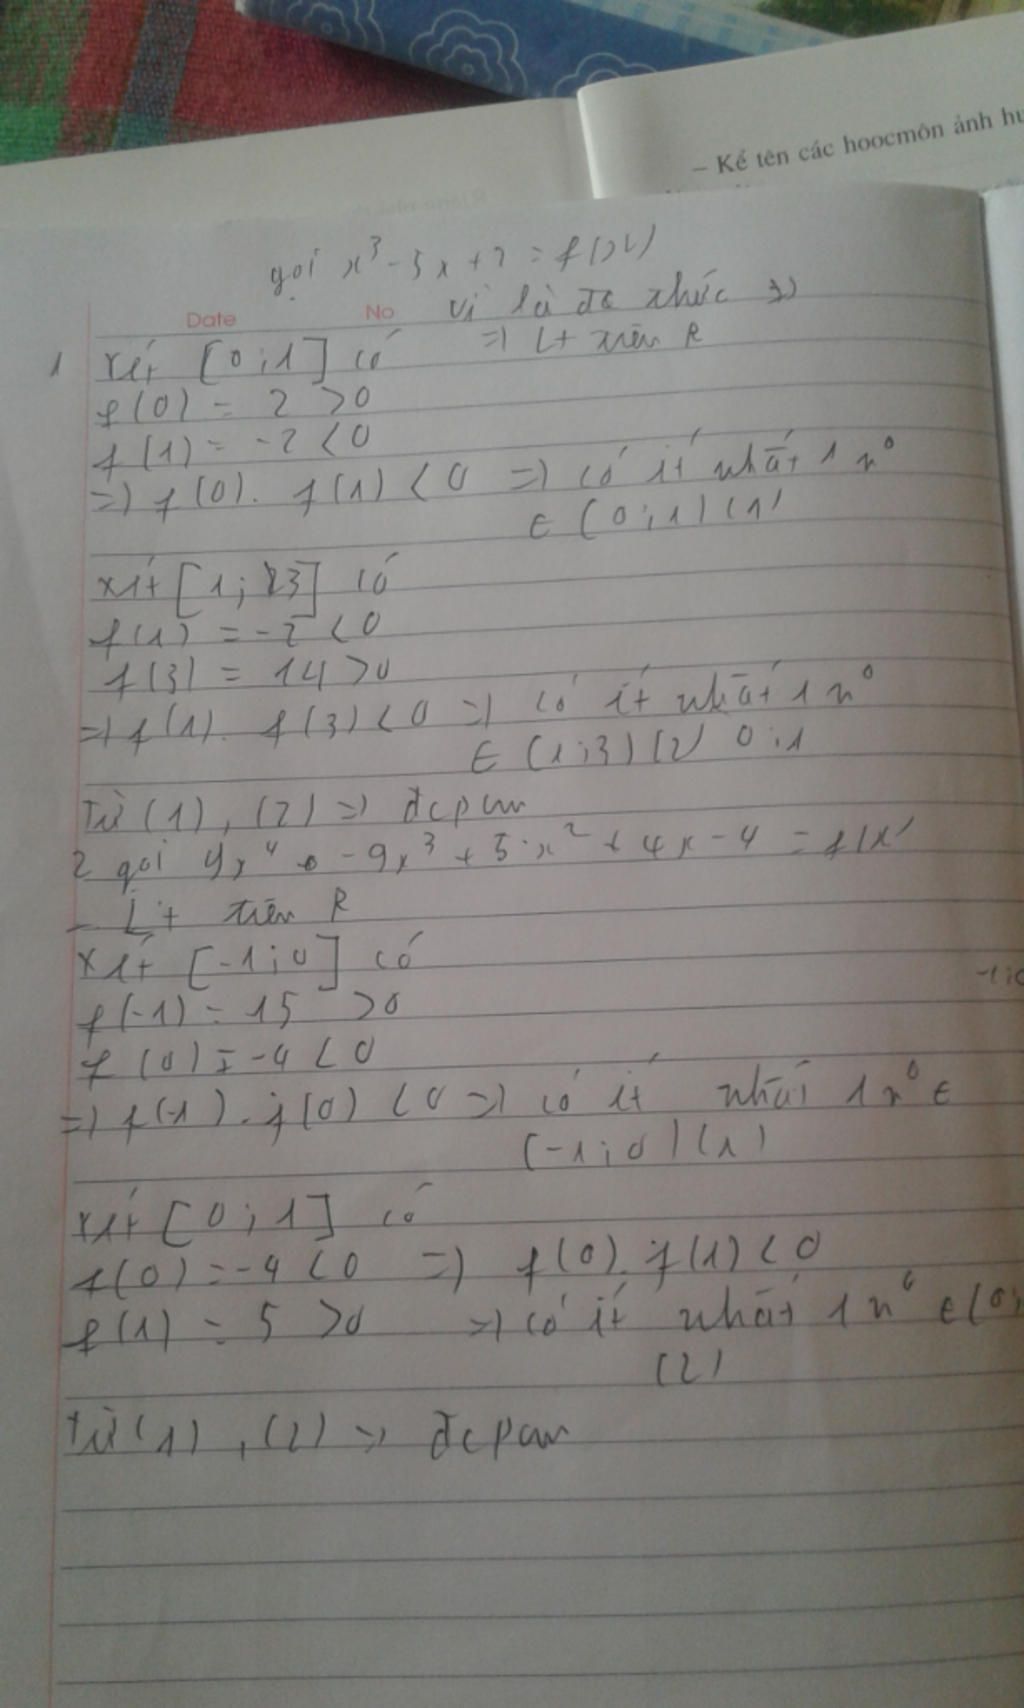 – Kể tên các hoocmôn ảnh hư
gọi x³ - 5x + 2 = f(x)
Date No vì là đa thức
=> Lt trên R
1 xét [0;1] có
f(0) = 2 > 0
f(1) = -2 < 0
=> f(0). f(1) < 0 => có ít nhất 1 n⁰
∈ (0;1) (1)
xét [1; 3] có
f(1) = -2 < 0
f(3) = 14 > 0
=> f(1). f(3) < 0 => có ít nhất 1 n⁰
∈ (1;3) (2) 0;1
Từ (1), (2) => đcpcm
2 gọi 4x⁴ - 9x³ + 5x² + 4x - 4 = f(x)
- Lt trên R
xét [-1;0] có
f(-1) = 15 > 0
f(0) = -4 < 0
=> f(-1). f(0) < 0 => có ít nhất 1 n⁰ ∈
(-1;0) (1)
xét [0;1] có
f(0) = -4 < 0 => f(0). f(1) < 0
f(1) = 5 > 0 => có ít nhất 1 n⁰ ∈ (0;
(2)
từ (1), (2) => đcpcm